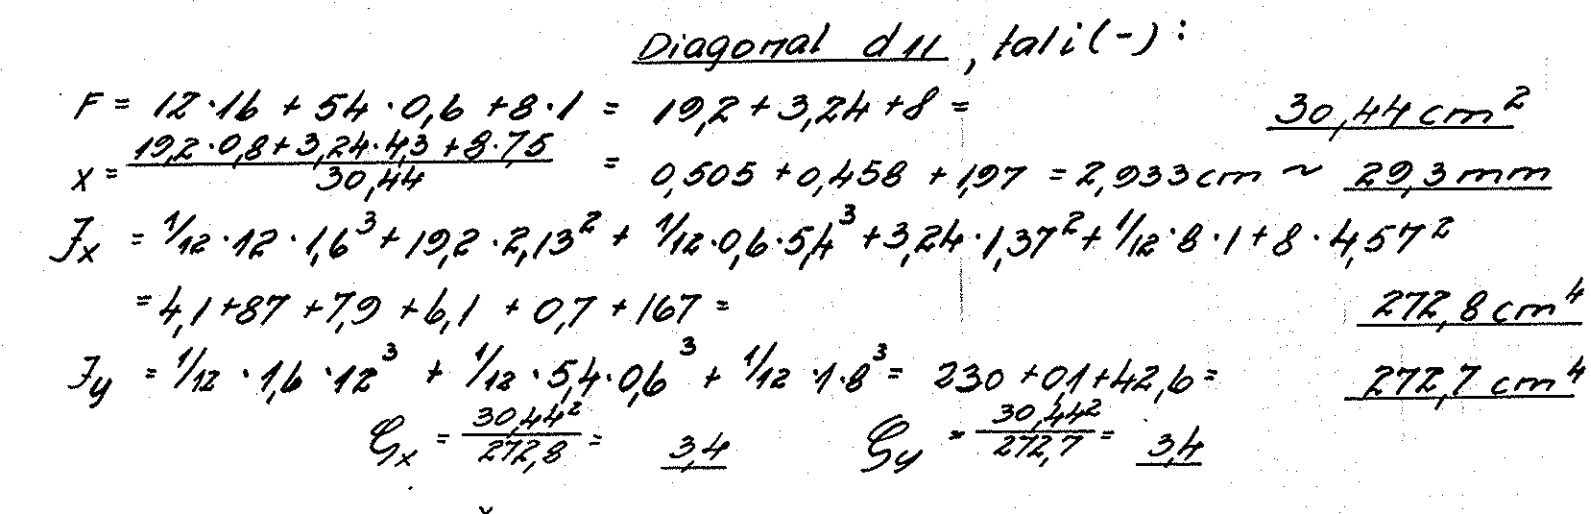 Diagonal d 11, tali (-):
F = 12·16 + 54·0,6 + 8·1 = 19,2 + 3,24 + 8 = 30,44 cm²
x = (19,2·0,8 + 3,24·4,3 + 8·7,5)/30,44 = 0,505 + 0,458 + 1,97 = 2,933 cm ~ 29,3 mm
Jx = 1/12·12·1,6³ + 19,2·2,13² + 1/12·0,6·5,4³ + 3,24·1,37² + 1/12·8·1 + 8·4,57²
= 4,1 + 87 + 7,9 + 6,1 + 0,7 + 167 = 272,8 cm⁴
Jy = 1/12·1,6·12³ + 1/12·5,4·0,6³ + 1/12·1·8³ = 230 + 0,1 + 42,6 = 272,7 cm⁴
x = 30,44²/272,8 = 3,4 y = 30,44²/272,7 = 3,4